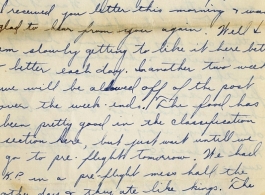 received your letter this morning & was
glad to hear from you again. Well I
am slowly getting to like it here bet
better each day. In another two week
we will be allowed off of the post
over the week-end. The food has
been pretty good in the classification
section here, but just wait until we
go to pre-flight tomorrow. We had
K.P. in a pre-flight mess hall the
other day & they ate like kings. The